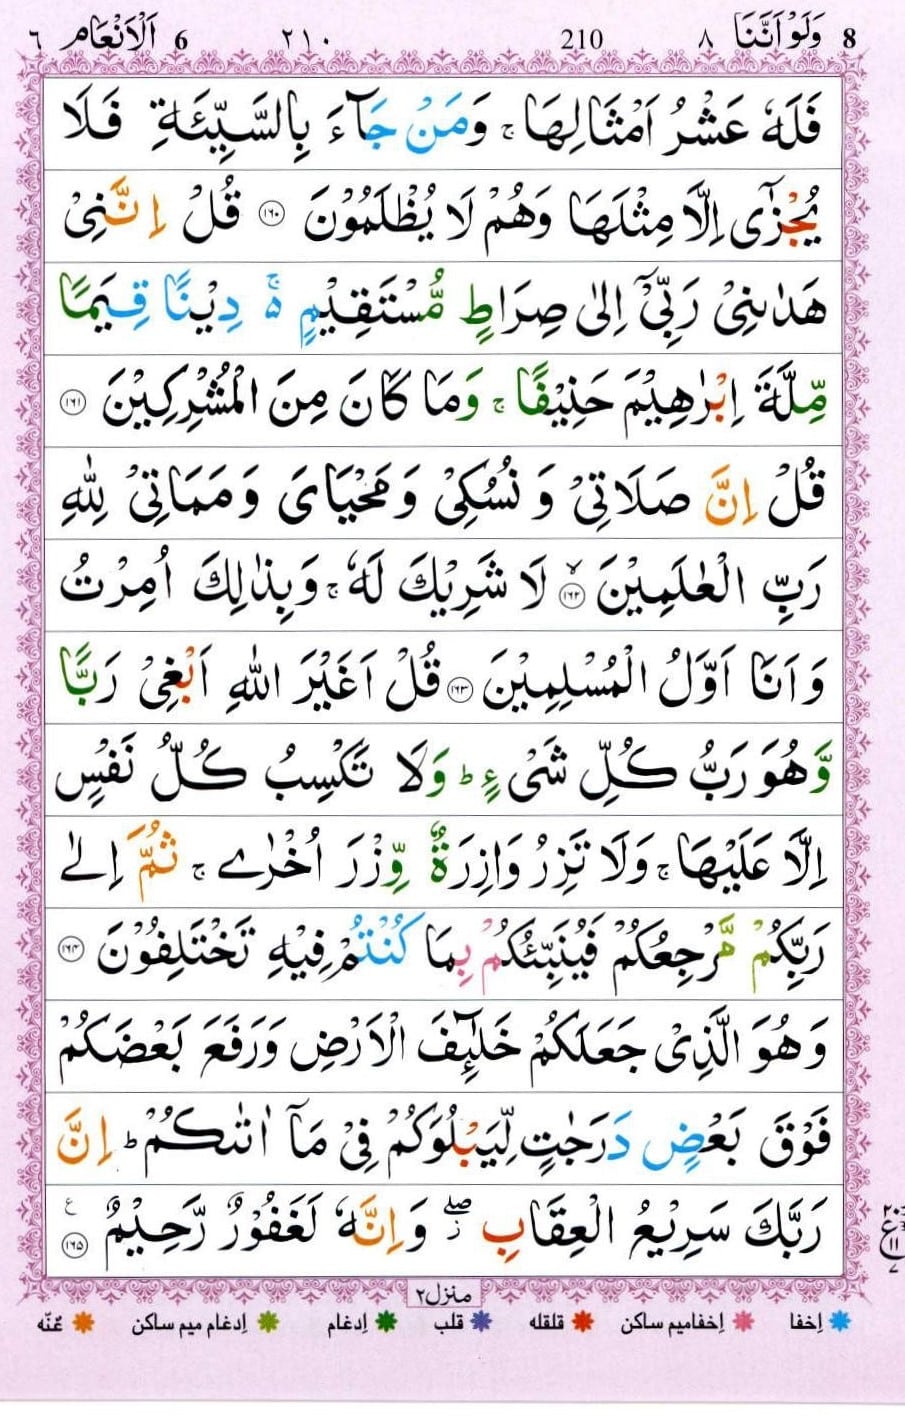 8 وَلَوْ اَنَّنَا ٨ 210 ٢١٠ 6 اَلْاَنْعَام ٦
فَلَهٗ عَشْرُ اَمْثَالِهَا ۚ وَمَنْ جَآءَ بِالسَّيِّئَةِ فَلَا
يُجْزٰٓى اِلَّا مِثْلَهَا وَهُمْ لَا يُظْلَمُوْنَ ١٦٠ قُلْ اِنَّنِيْ
هَدٰىنِيْ رَبِّيْٓ اِلٰى صِرَاطٍ مُّسْتَقِيْمٍ ۚ دِيْنًا قِيَمًا
مِّلَّةَ اِبْرٰهِيْمَ حَنِيْفًا ۚ وَمَا كَانَ مِنَ الْمُشْرِكِيْنَ ١٦١
قُلْ اِنَّ صَلَاتِيْ وَنُسُكِيْ وَمَحْيَايَ وَمَمَاتِيْ لِلّٰهِ
رَبِّ الْعٰلَمِيْنَ ۙ ١٦٢ لَا شَرِيْكَ لَهٗ ۚ وَبِذٰلِكَ اُمِرْتُ
وَاَنَا اَوَّلُ الْمُسْلِمِيْنَ ١٦٣ قُلْ اَغَيْرَ اللّٰهِ اَبْغِيْ رَبًّا
وَّهُوَ رَبُّ كُلِّ شَيْءٍ ؕ وَلَا تَكْسِبُ كُلُّ نَفْسٍ
اِلَّا عَلَيْهَا ۚ وَلَا تَزِرُ وَازِرَةٌ وِّزْرَ اُخْرٰى ۚ ثُمَّ اِلٰى
رَبِّكُمْ مَّرْجِعُكُمْ فَيُنَبِّئُكُمْ بِمَا كُنْتُمْ فِيْهِ تَخْتَلِفُوْنَ ١٦٤
وَهُوَ الَّذِيْ جَعَلَكُمْ خَلٰٓئِفَ الْاَرْضِ وَرَفَعَ بَعْضَكُمْ
فَوْقَ بَعْضٍ دَرَجٰتٍ لِّيَبْلُوَكُمْ فِيْ مَآ اٰتٰىكُمْ ؕ اِنَّ
رَبَّكَ سَرِيْعُ الْعِقَابِ ۖ ز وَاِنَّهٗ لَغَفُوْرٌ رَّحِيْمٌ ١٦٥ ع
٢٠
ع
١١
٧
منزل ٢
اِخفا اِخفامیم ساکن قلقله قلب اِدغام اِدغام میم ساکن غنّه